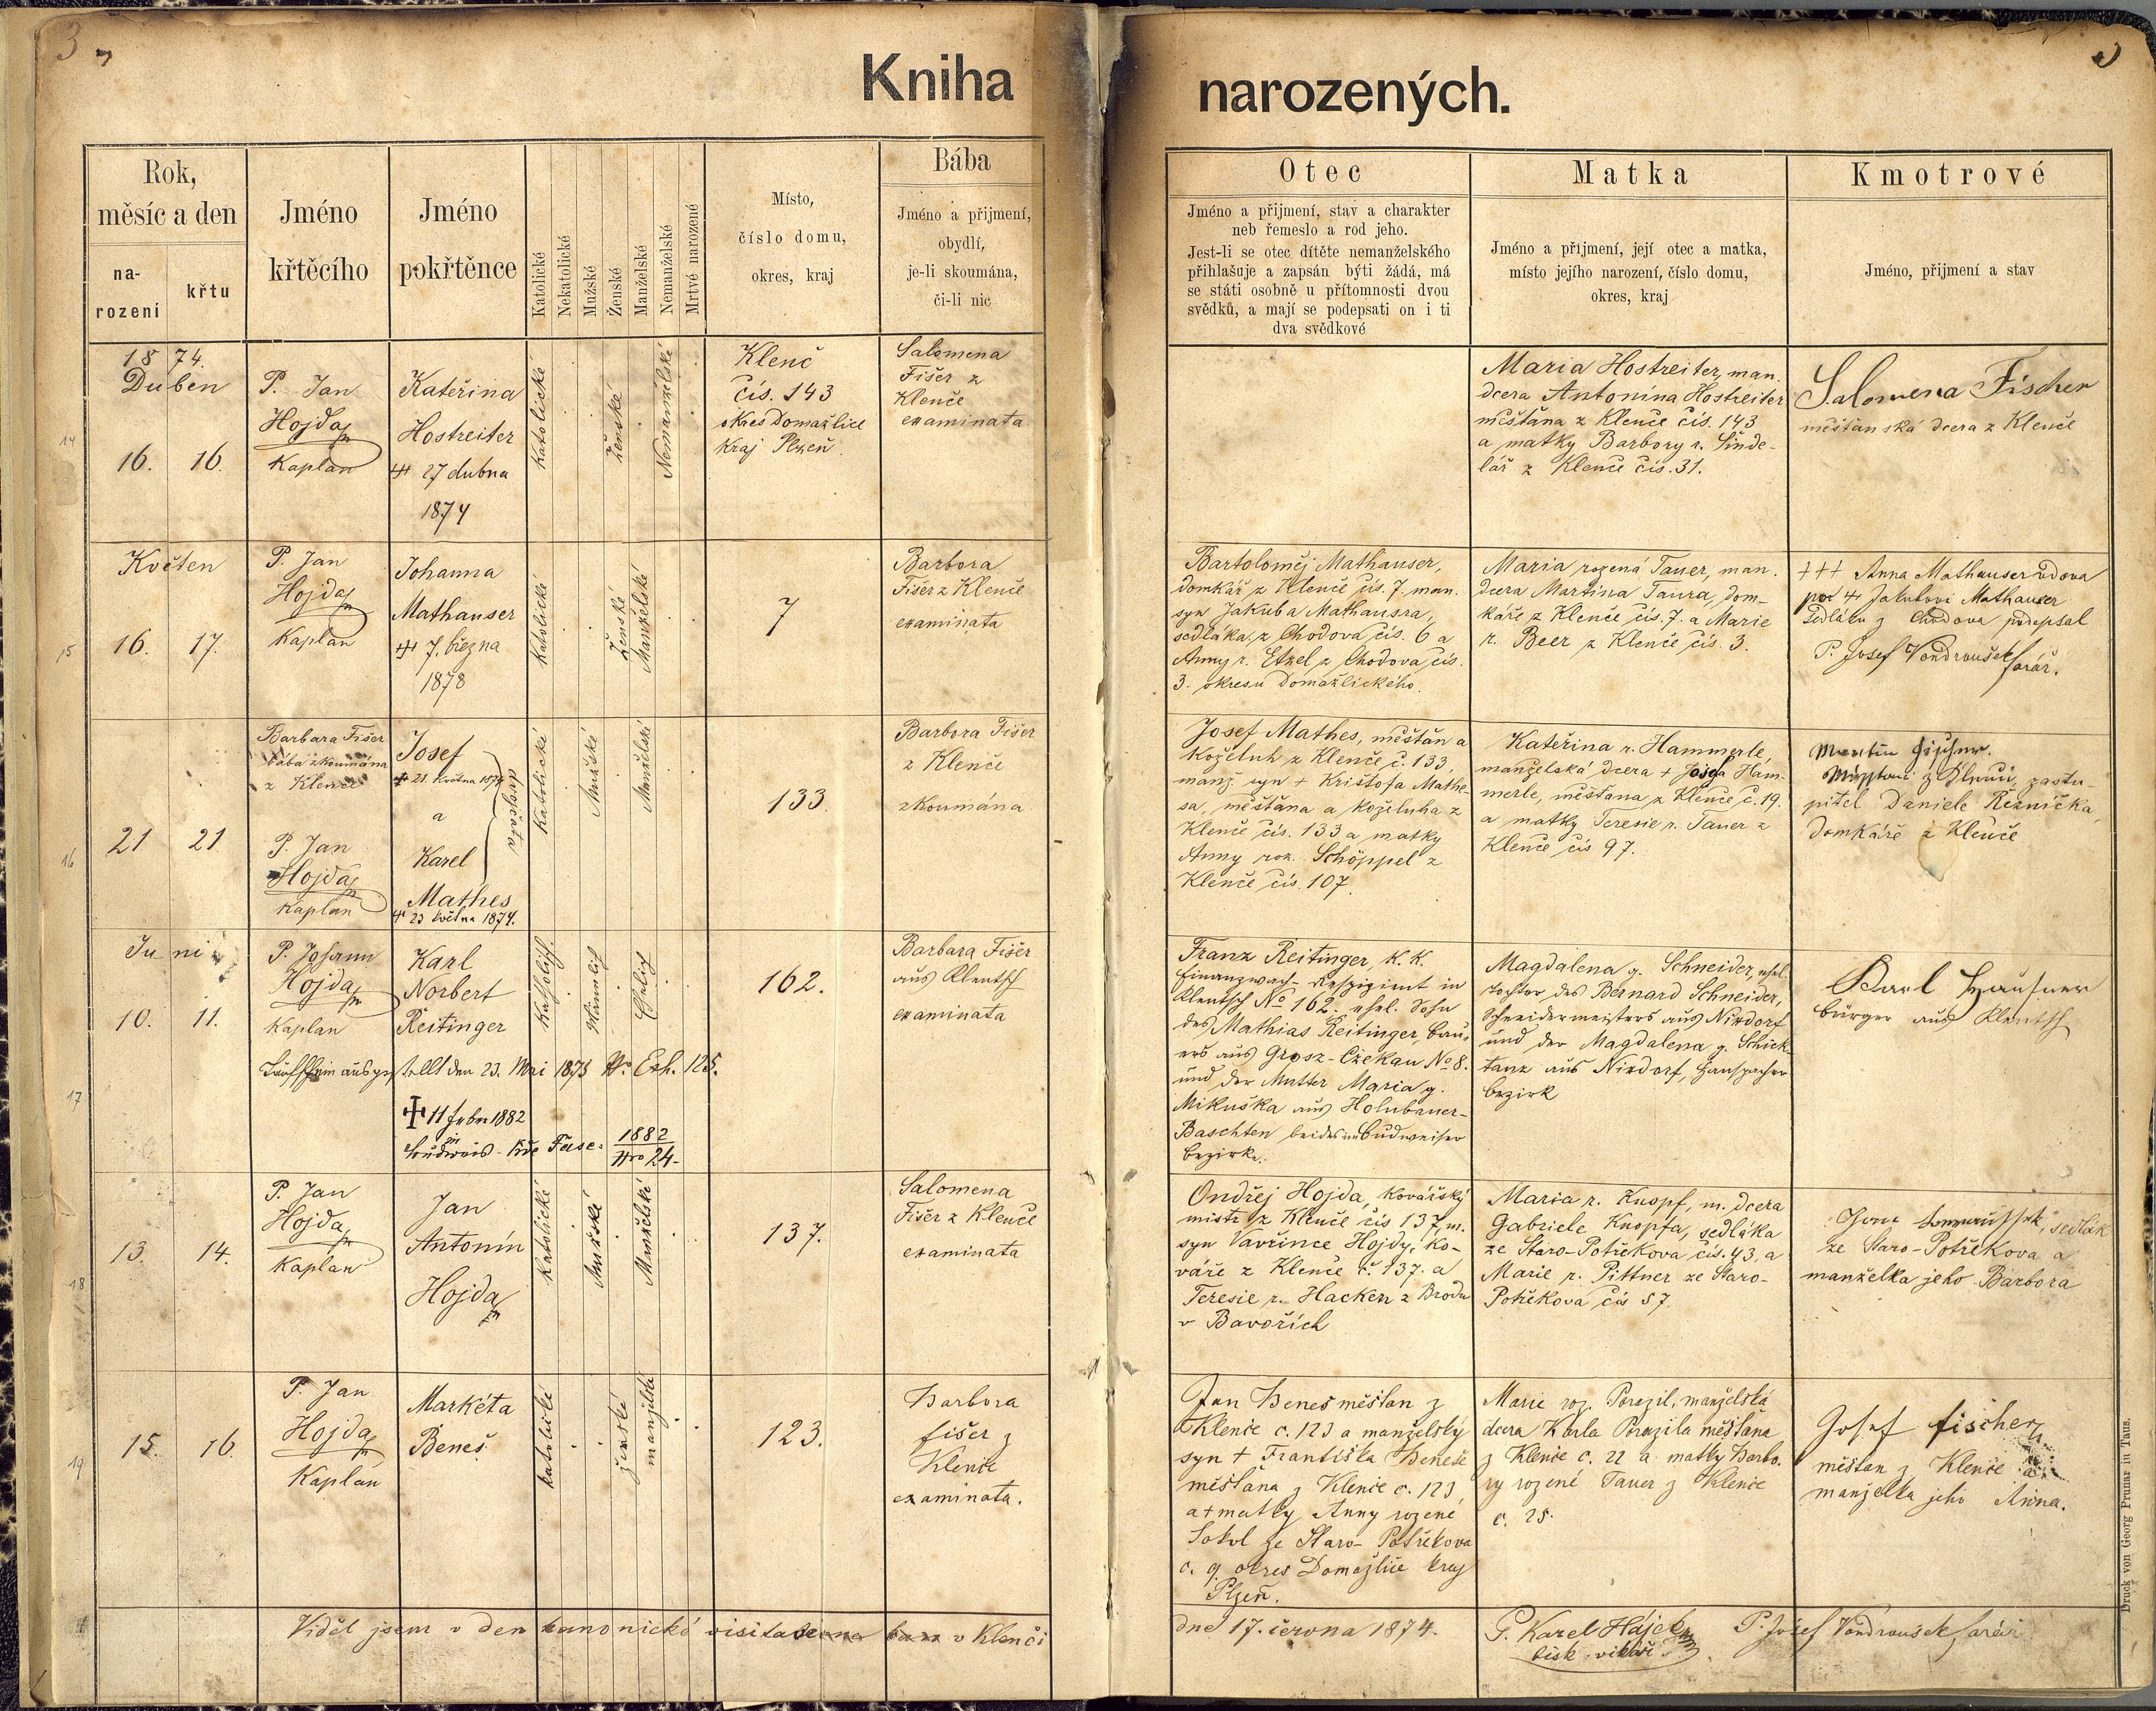 3
Kniha narozených.
Rok,
měsíc a den
na-
rození
křtu
Jméno
křtěcího
Jméno
pokřtěnce
Katolické
Nekatolické
Mužské
Ženské
Manželské
Nemanželské
Mrtvé narozené
Místo,
číslo domu,
okres, kraj
Bába
Jméno a přijmení,
obydlí,
je-li skoumána,
či-li nic
Otec
Jméno a přijmení, stav a charakter
neb řemeslo a rod jeho.
Jest-li se otec dítěte nemanželského
přihlašuje a zapsán býti žádá, má
se státi osobně u přítomnosti dvou
svědků, a mají se podepsati on i ti
dva svědkové
Matka
Jméno a přijmení, její otec a matka,
místo jejího narození, číslo domu,
okres, kraj
Kmotrové
Jméno, přijmení a stav
14
1874.
Duben
16. 16.
P. Jan
Hojda
Kaplan
Kateřina
Hostreiter
27 dubna
1874
Katolické
Ženské
Nemanželské
Klenč
čís. 143
okres Domažlice
Kraj Plzeň.
Salomena
Fišer z
Klenče
examinata
Maria Hostreiter, man.
dcera Antonína Hostreiter
měšťana z Klenče čís. 143
a matky Barbory r. Šinde-
lář z Klenče čís. 31.
Salomena Fischer
měšťanská dcera z Klenče
15
Květen
16. 17.
P. Jan
Hojda
Kaplan
Johanna
Mathauser
7. března
1878
Katolické
Ženské
Manželské
7
Barbora
Fišer z Klenče
examinata
Bartoloměj Mathauser,
domkář z Klenče čís. 7. man.
syn Jakuba Mathausra,
sedláka, z Chodova čís. 6 a
Anny r. Etzel z Chodova čís.
3. okresu Domažlického.
Maria rozená Tauer, man.
dcera Martina Taura, dom-
káře z Klenče čís. 7. a Marie
r. Beer z Klenče čís. 3.
+++ Anna Mathauser vdova
po Jakubovi Mathauser
sedláku z Chodova podepsal
P. Josef Vondroušek farář.
16
21 21
Barbara Fišer
bába zkoumána
z Klenče
P. Jan
Hojda
Kaplan
Josef
21. května 1874
a
Karel
Mathes
23 května 1874.
dvojčata
Katolické
Mužské
Manželské
133.
Barbora Fišer
z Klenče
zkoumána
Josef Mathes, měšťan a
koželuh z Klenče č. 133,
manž. syn + Krištofa Mathe-
sa, měšťana a koželuha z
Klenče čís. 133 a matky
Anny roz. Schöppel z
Klenče čís. 107.
Kateřina r. Hammerle,
manželská dcera + Josefa Ham-
merle, měšťana z Klenče č. 19.
a matky Teresie r. Tauer z
Klenče čís 97.
Martin Fischer.
z Klenče, zastu-
pitel Daniele Řezníčka,
domkáře z Klenče
17
Juni
10. 11.
P. Johann
Hojda
Kaplan
Karl
Norbert
Reitinger
Katholisch.
Männlich
Ehelich
162.
Barbara Fišer
aus Klentsch
examinata
Taufschein ausgestellt den 23. Mai 1875 Nr. Exh. 125.
11 Feber 1882
1882
Nro 24.
Franz Reitinger, K. K.
Finanzwach-Respizient in
Klentsch No 162. ehel. Sohn
des Mathias Reitinger, Bau-
ers aus Grosz-Czekau No 8.
und der Mutter Maria g.
Mikuška aus Holubauer-
Baschten beides im Budweiser
Bezirke.
Magdalena g. Schneider, ehel.
Tochter des Bernard Schneider,
Schneidermeisters aus Nixdorf
und der Magdalena g. Schick-
tanz aus Nixdorf, Hanspacher
Bezirk
Karl Hausner
Bürger aus Klentsch
18
13. 14.
P. Jan
Hojda
Kaplan
Jan
Antonín
Hojda
Katolické
Mužské
Manželské
137.
Salomena
Fišer z Klenče
examinata
Ondřej Hojda, kovářský
mistr z Klenče čís 137, m.
syn Vavřince Hojdy, ko-
váře z Klenče č. 137. a
Teresie r. Hacken z Brodu
v Bavořích
Maria r. Knopf, m. dcera
Gabriele Knopfa, sedláka
ze Staro-Potřekova čís. 43, a
Marie r. Pittner ze Staro-
Potřekova čís 57.
sedlák
ze Staro-Potřekova a
manželka jeho Barbora
19
15. 16.
P. Jan
Hojda
Kaplan
Markéta
Beneš
katolické
ženské
manželské
123.
Barbora
fišer z
Klenče
examinata.
Jan Beneš měšťan z
Klenče č. 123 a manželský
syn + Františka Beneše
měšťana z Klenče č. 123,
a + matky Anny rozené
Sokol ze Staro-Potřekova
č. 9. okres Domažlice kraj
Plzeň.
Marie roz. Porazil, manželská
dcera Karla Porazila měšťana
z Klenče č. 22 a matky Barbo-
ry rozené Tauer z Klenče
č. 25.
Josef Fischer
měšťan z Klenče a
manželka jeho Anna.
Viděl jsem v den kanonické visitace v Klenči
dne 17. června 1874.
P. Karel Hájek
bisk. vikář.
P. Josef Vondroušek farář
Druck von Georg Prunar in Taus.